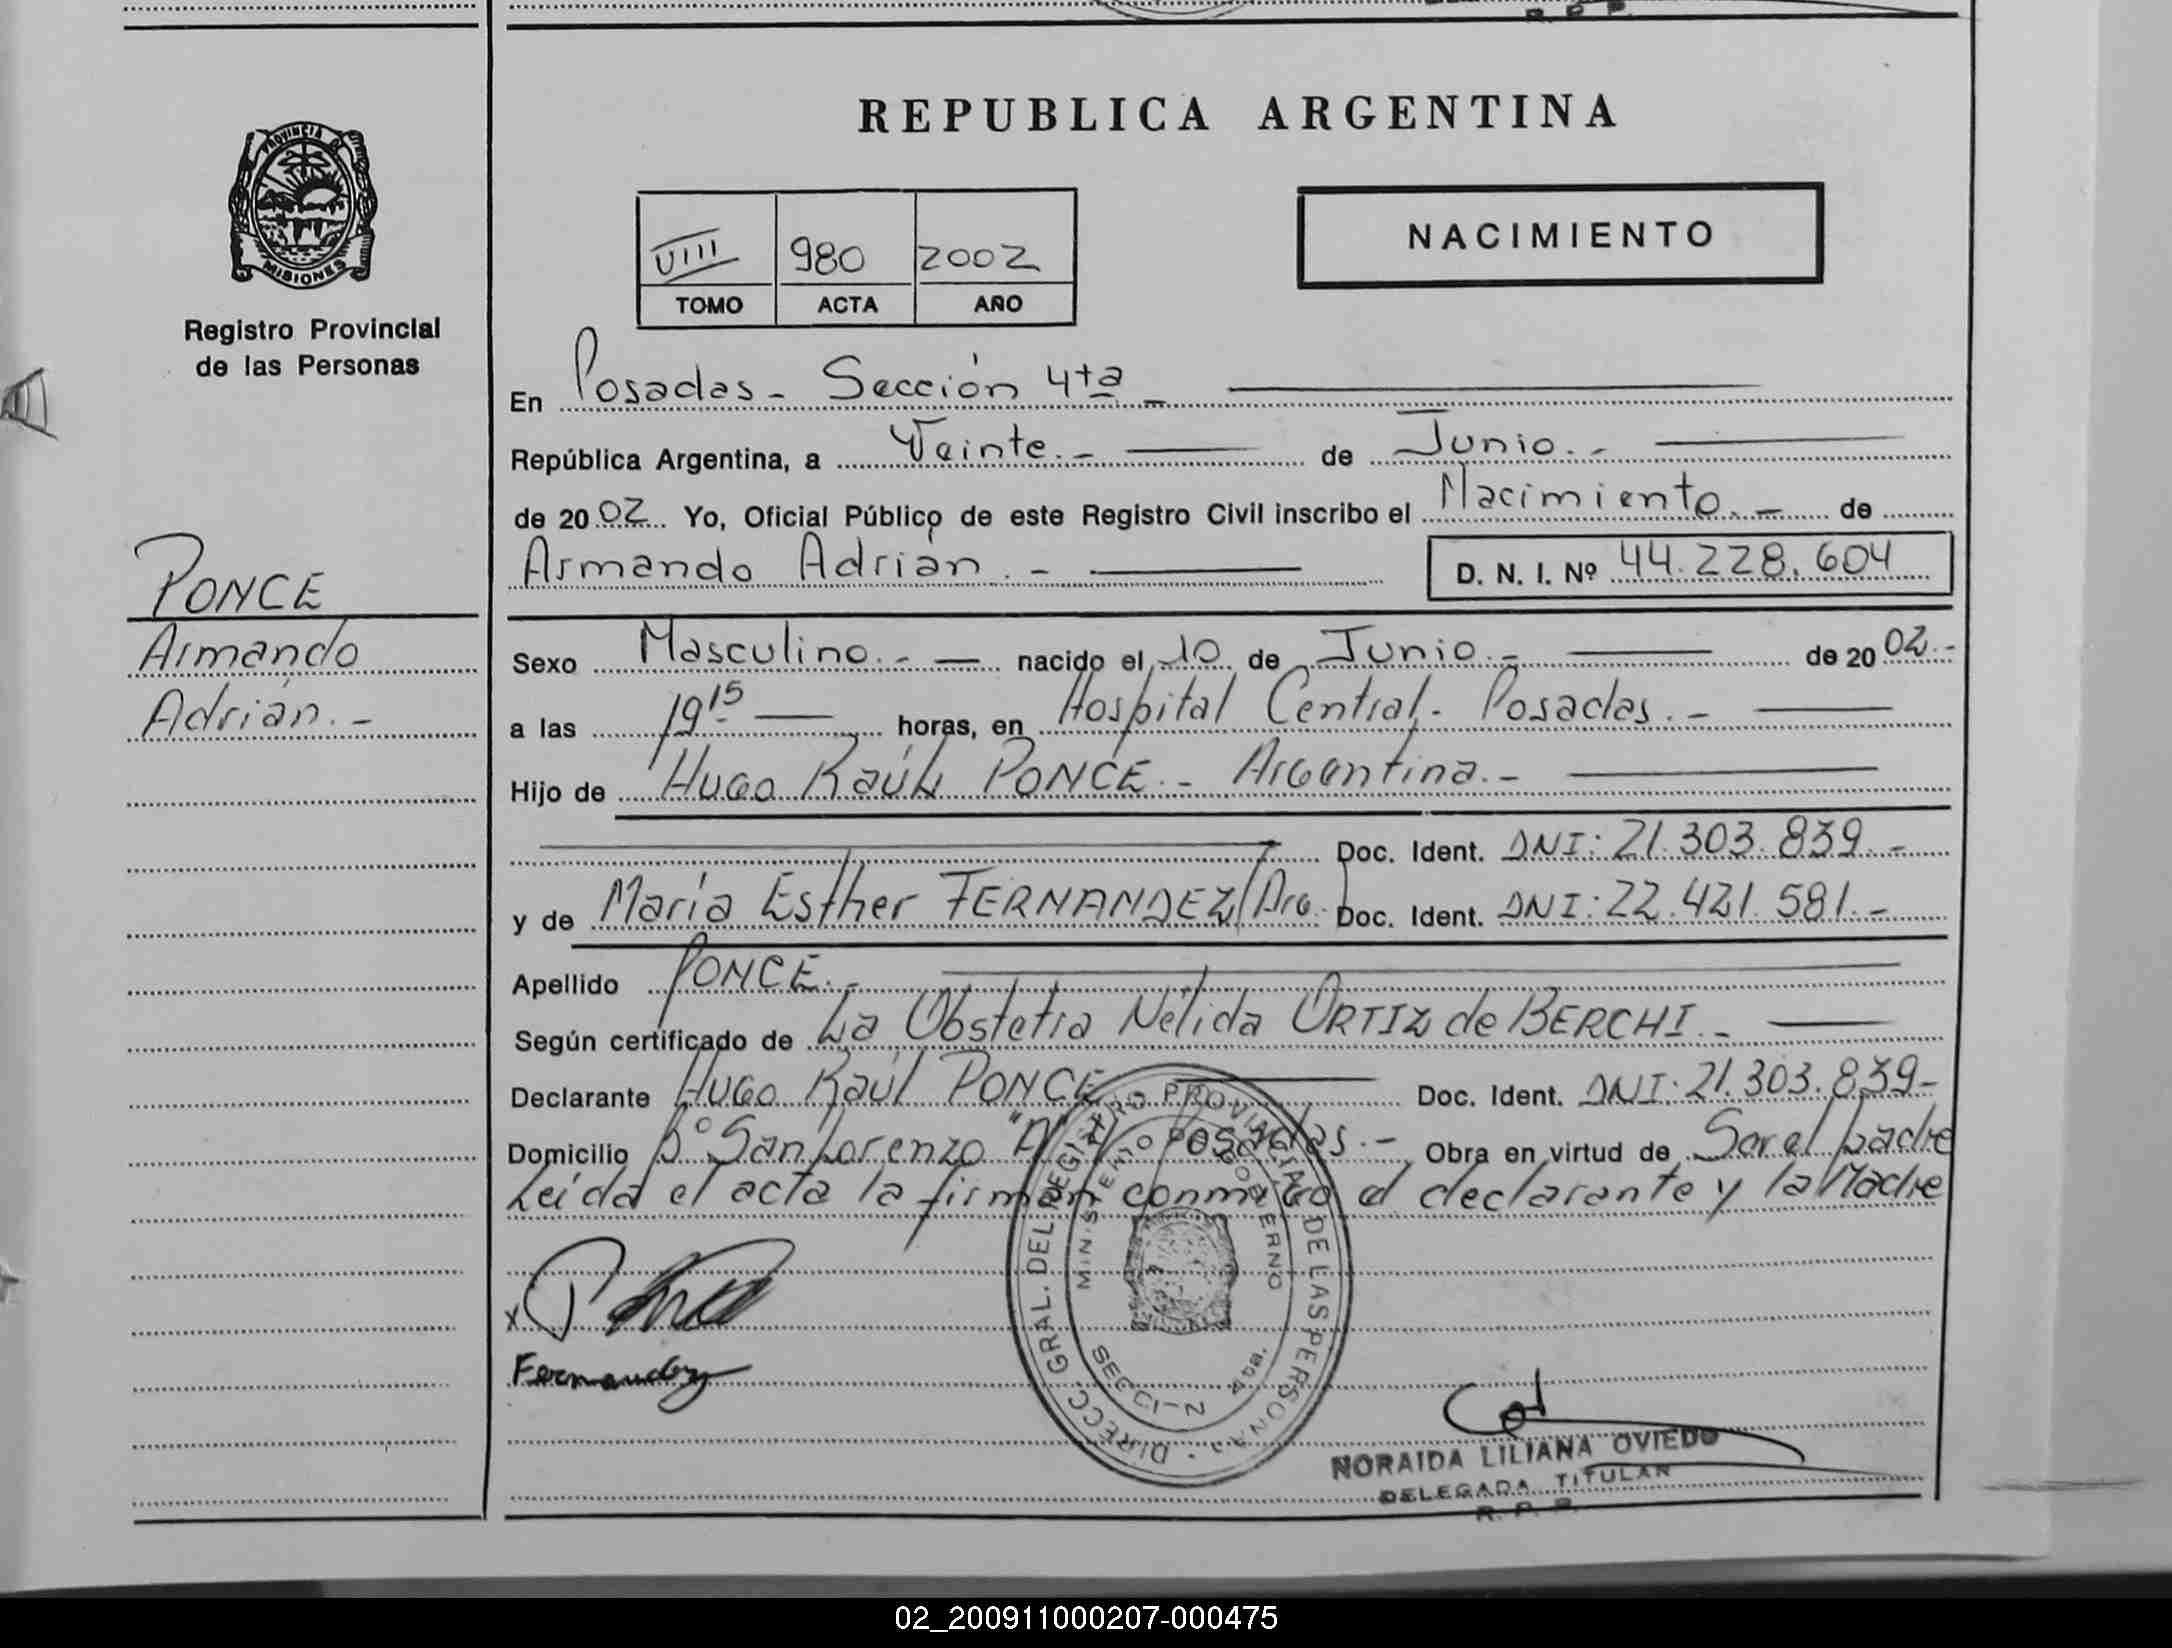 R. P. P.
PROVINCIA DE
MISIONES
Registro Provincial
de las Personas
PONCE
Armando
Adrián.-
REPUBLICA ARGENTINA
VIII 980 2002
TOMO ACTA AÑO
NACIMIENTO
En Posadas- Sección 4ta -
República Argentina, a Veinte.- de Junio.-
de 2002 Yo, Oficial Público de este Registro Civil inscribo el Nacimiento.- de
Armando Adrián.- D. N. I. Nº 44.228.604
Sexo Masculino.- nacido el 10 de Junio.- de 2002.-
a las 19 15 horas, en Hospital Central- Posadas.-
Hijo de Hugo Raúl PONCE.- Argentina.-
Doc. Ident. DNI: 21.303.839.-
y de María Esther FERNANDEZ/Arg. Doc. Ident. DNI: 22.421.581.-
Apellido PONCE.-
Según certificado de La Obstetra Nélida ORTIZ de BERCHI.-
Declarante Hugo Raúl PONCE Doc. Ident. DNI: 21.303.839-
Domicilio Bº San Lorenzo "A" Posadas.- Obra en virtud de Ser el padre
Leída el acta la firman conmigo el declarante y la Madre
DIRECC. GRAL. DEL REGISTRO PROVINCIAL DE LAS PERSONAS
MINISTERIO GOBIERNO
SECCI-N 4ta.
x
Fernandez
NORAIDA LILIANA OVIEDO
DELEGADA TITULAR
R. P. P.
02_200911000207-000475